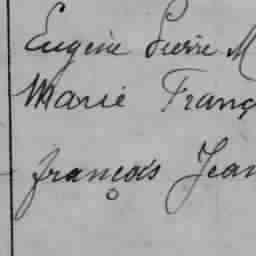 Eugène Pierre M
Marie Franç
françois Jean